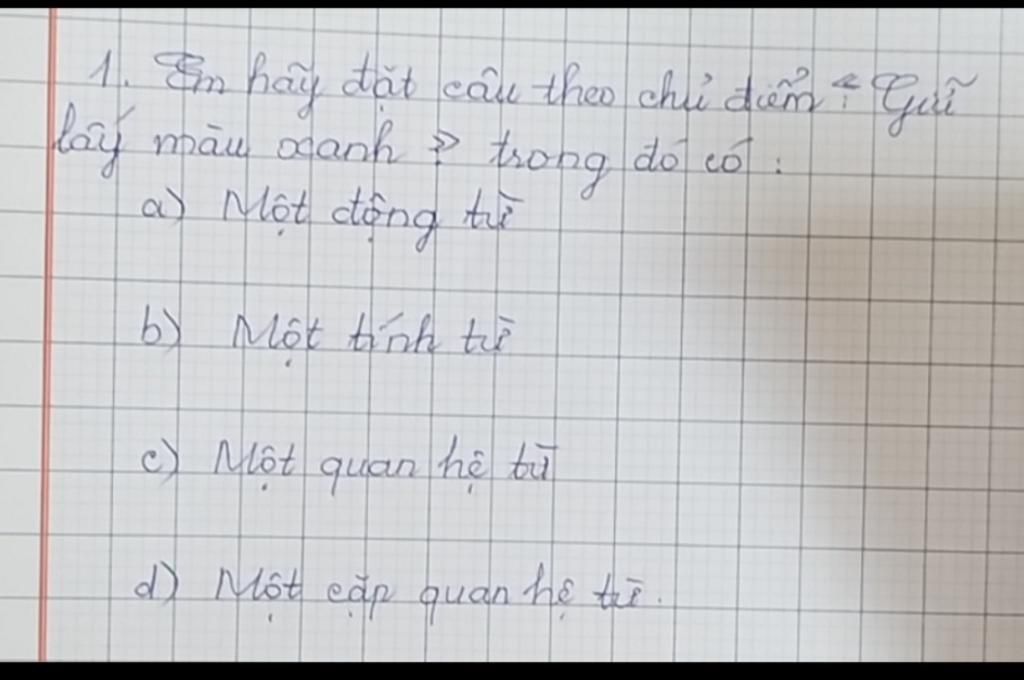 1. Em hãy đặt câu theo chủ điểm "Giữ
lấy màu xanh" trong đó có :
a) Một động từ
b) Một tính từ
c) Một quan hệ từ
d) Một cặp quan hệ từ.